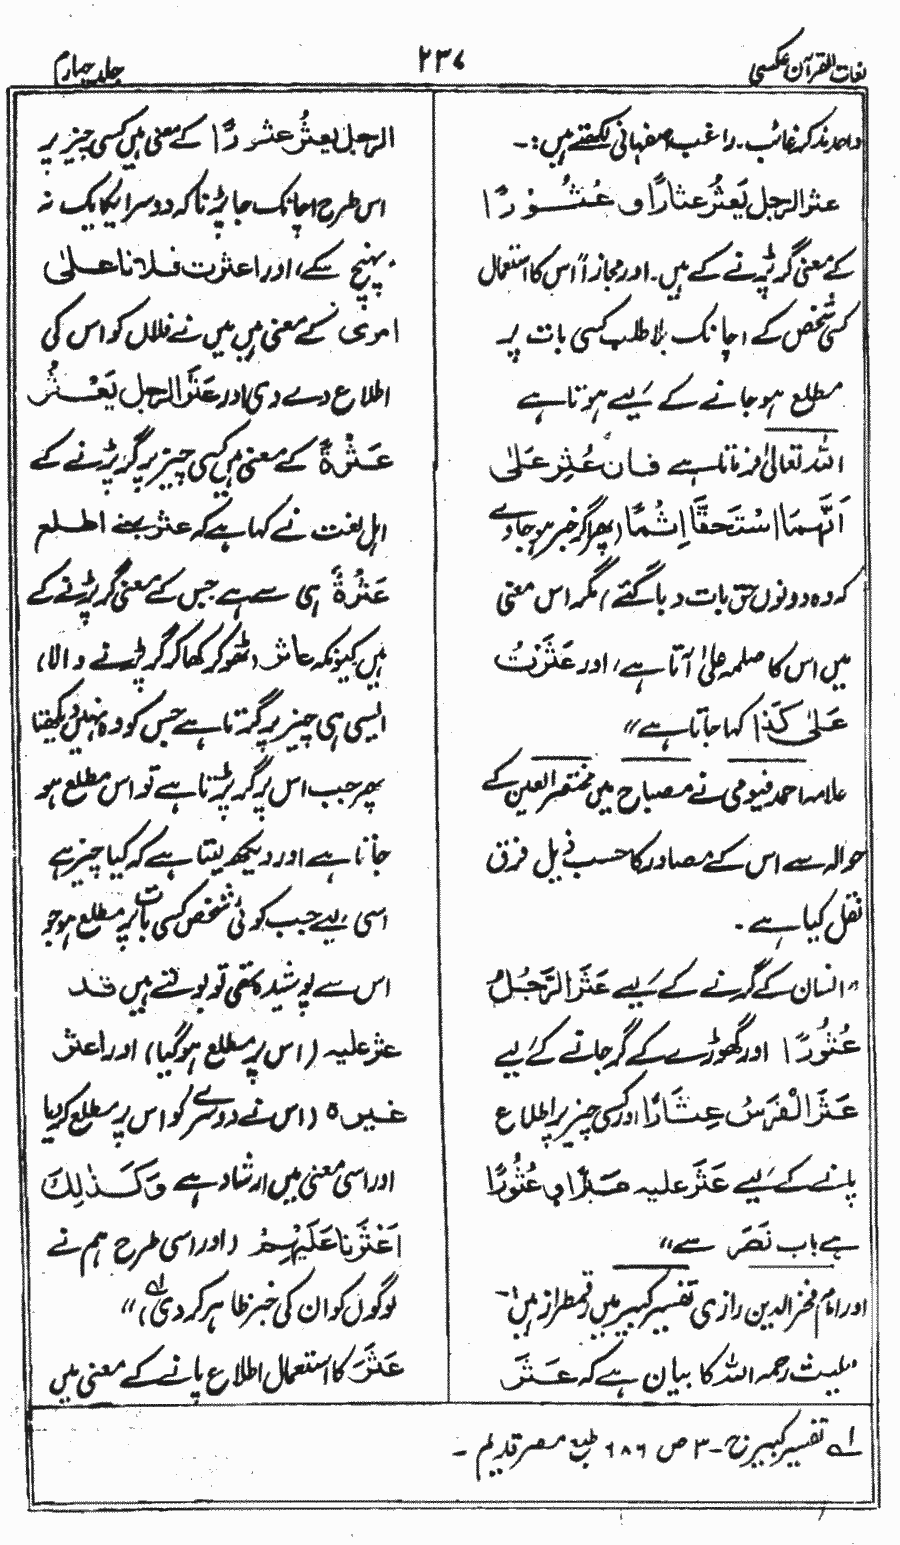 لغات القرآن عکسی
۲۳۷
جلد چہارم
واحد مذکر غائب۔ راغب اصفہانی لکھتے ہیں :۔
عثر الرجل یَعثُرُ عثاراً و عُثُوْرًا
کے معنی گر پڑنے کے ہیں۔ اور مجازاً اس کا استعمال
کسی شخص کے اچانک بلا طلب کسی بات پر
مطلع ہو جانے کے لیے ہوتا ہے
اللہ تعالیٰ فرماتا ہے فان عُثِرَ عَلٰی
اَنَّهُمَا اسْتَحَقَّا اِثْمًا (پھر اگر خبر ہو جاوے
کہ وہ دونوں حق بات دبا گئے) مگر اس معنی
میں اس کا صلہ علیٰ آتا ہے، اور عَثَرْتُ
عَلٰی کَذَا کہا جاتا ہے"
علامہ احمد فیومی نے مصباح میں مختصر العین کے
حوالہ سے اس کے مصادر کا حسب ذیل فرق
نقل کیا ہے۔
"انسان کے گرنے کے لیے عَثَرَ الرَّجُلُ
عُثُورًا اور گھوڑے کے گر جانے کے لیے
عَثَرَ الْفَرَسُ عِثَارًا اور کسی چیز پر اطلاع
پانے کے لیے عَثَرَ علیہ عَثْرًا و عُثُورًا
ہے باب نَصَرَ سے"
اور امام فخر الدین رازی تفسیر کبیر میں رقمطراز ہیں :۔
"لیث رحمہ اللہ کا بیان ہے کہ عَثَرَ
الرجل یعثُرُ عثرًا کے معنی ہیں کسی چیز پر
اس طرح اچانک جا پڑنا کہ دوسرا یکایک نہ
پہنچ سکے، اور اعثرت فلانا علیٰ
امری کے معنی ہیں میں نے فلاں کو اس کی
اطلاع دے دی اور عَثَرَ الرجل یَعْثُرُ
عَثْرَةً کے معنی ہیں کسی چیز پر گر پڑنے کے
اہل لغت نے کہا ہے کہ عثر بمعنے اطلع
عَثْرَةً ہی سے ہے جس کے معنی گر پڑنے کے
ہیں کیونکہ عاثر (ٹھوکر کھا کر گر پڑنے والا)
ایسی ہی چیز پر گرتا ہے جس کو وہ نہیں دیکھتا
پھر جب اس پر گر پڑتا ہے تو اس مطلع ہو
جاتا ہے اور دیکھ لیتا ہے کہ کیا چیز ہے
اسی لیے جب کوئی شخص کسی بات پر مطلع ہو جو
اس سے پوشیدہ تھی تو بولتے ہیں قد
عثر علیہ (اس پر مطلع ہو گیا) اور اعثر
غیرہ (اس نے دوسرے کو اس پر مطلع کر دیا
اور اسی معنی میں ارشاد ہے وَکَذٰلِكَ
اَعْثَرْنَا عَلَیْهِمْ (اور اسی طرح ہم نے
لوگوں کو ان کی خبر ظاہر کر دی) ؎۱"
عَثَرَ کا استعمال اطلاع پانے کے معنی میں
؎۱ تفسیر کبیر ج۔۳ ص ۶۸۶ طبع مصر قدیم۔